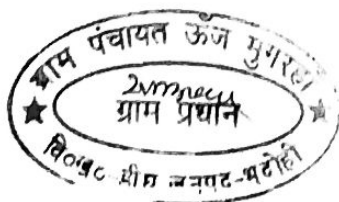 ग्राम पंचायत ऊँज मुगरहा
ग्राम प्रधान
वि०ख० डीघ जनपद-भदोही